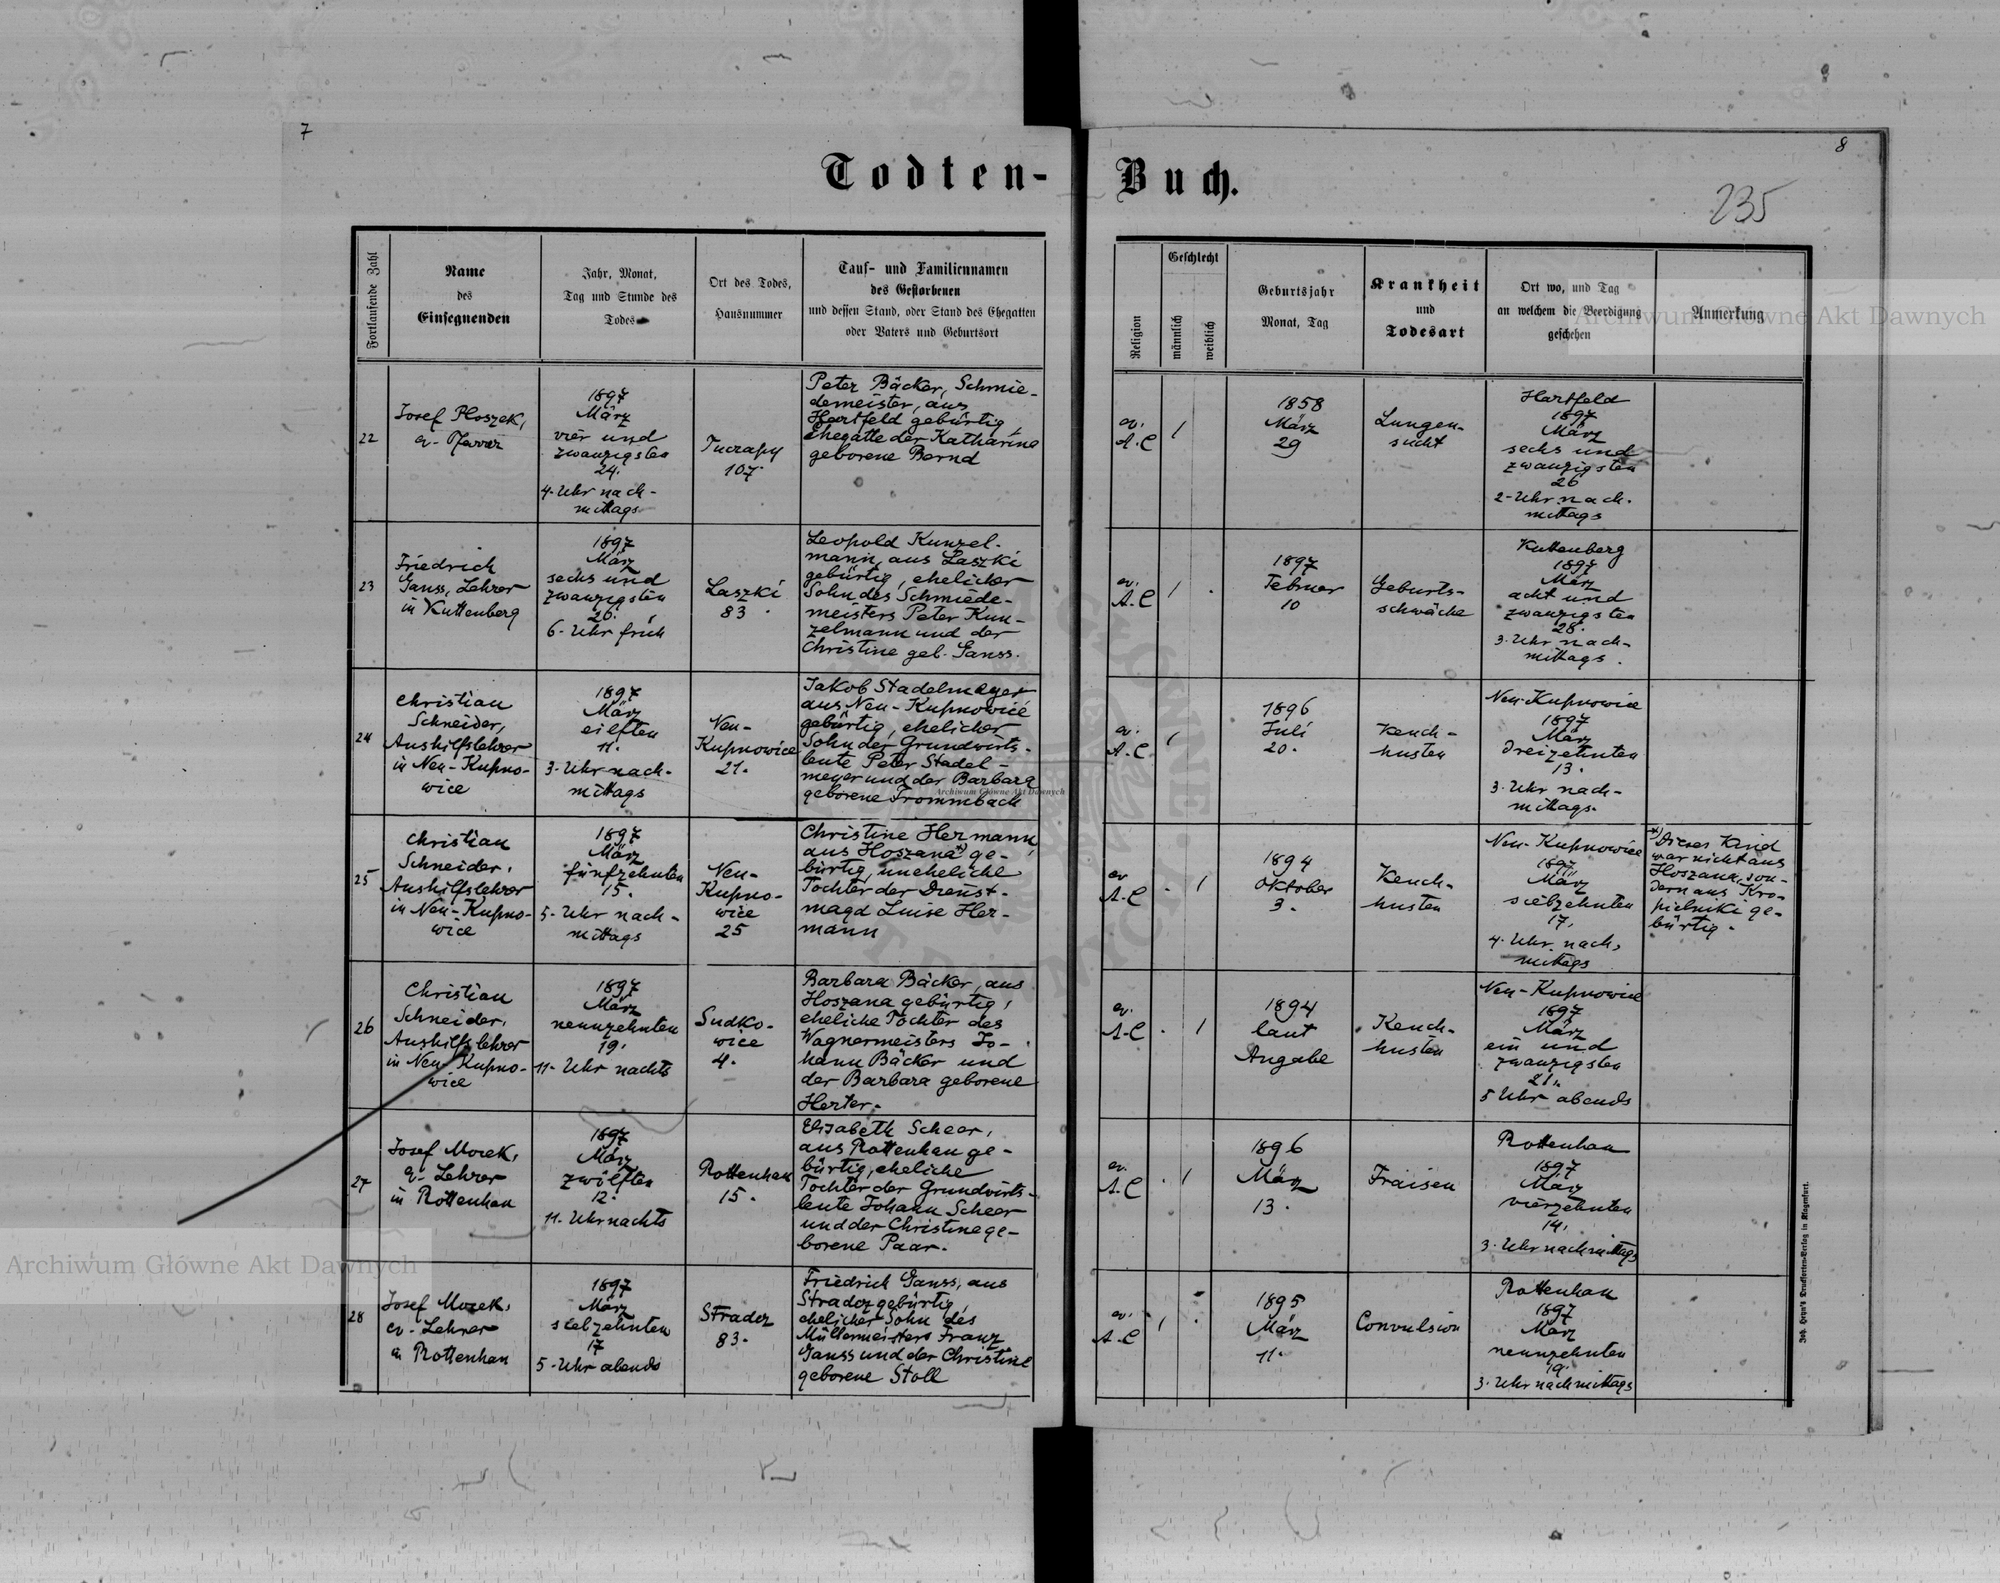 7
8
Todten-Buch.
235
Fortlaufende Zahl
Name
des
Einsegnenden
Jahr, Monat,
Tag und Stunde des
Todes
Ort des Todes,
Hausnummer
Tauf- und Familiennamen
des Gestorbenen
und dessen Stand, oder Stand des Ehegatten
oder Vaters und Geburtsort
Religion
Geschlecht
männlich
weiblich
Geburtsjahr
Monat, Tag
Krankheit
und
Todesart
Ort wo, und Tag
an welchem die Beerdigung
geschehen
Anmerkung
22
Josef Ploszek,
ev. Pfarrer
1897
März
vier und
zwanzigsten
24.
4. Uhr nach-
mittags
Tucrapy
107.
Peter Bäcker, Schmie-
demeister, aus
Hartfeld gebürtig,
Ehegatte der Katharina
geborene Bernd
ev.
A.C
1
1858
März
29
Lungen-
sucht
Hartfeld
1897
März
sechs und
zwanzigsten
26
2-Uhr nach-
mittags
23
Friedrich
Ganss, Lehrer
in Kuttenberg
1897
März
sechs und
zwanzigsten
26.
6. Uhr früh
Laszki
83.
Leopold Kunzel-
mann, aus Laszki
gebürtig, ehelicher
Sohn des Schmiede-
meisters Peter Kun-
zelmann und der
Christine geb. Ganss.
ev.
A.C
1
1897
Februar
10
Geburts-
schwäche
Kuttenberg
1897
März
acht und
zwanzigsten
28.
3. Uhr nach-
mittags.
24
Christian
Schneider,
Aushilfslehrer
in Neu-Kupno-
wice
1897
März
eilften
11.
3. Uhr nach-
mittags
Neu-
Kupnowice
21.
Jakob Stadelmayer
aus Neu-Kupnowice
gebürtig, ehelicher
Sohn der Grundwirts-
leute Peter Stadel-
meyer und der Barbara
geborene Frommbach
ev.
A.C.
1
1896
Juli
20.
Keuch-
husten
Neu-Kupnowice
1897
März
dreizehnten
13.
3. Uhr nach-
mittags.
25
Christian
Schneider,
Aushilfslehrer
in Neu-Kupno-
wice
1897
März
fünfzehnten
15.
5. Uhr nach-
mittags
Neu-
Kupno-
wice
25
Christine Hermann,
aus Hoszana*) ge-
bürtig, uneheliche
Tochter der Dienst-
magd Luise Her-
mann
ev
A.C
1
1894
Oktober
3.
Keuch-
husten
Neu-Kupnowice
1897
März
siebzehnten
17.
4. Uhr nach-
mittags
*) Dieses Kind
war nicht aus
Hoszana, son-
dern aus Kro-
pielniki ge-
bürtig.
26
Christian
Schneider,
Aushilfslehrer
in Neu-Kupno-
wice
1897
März
neunzehnten
19.
11. Uhr nachts
Sudko-
wice
4.
Barbara Bäcker, aus
Hoszana gebürtig,
eheliche Tochter des
Wagnermeisters Jo-
hann Bäcker und
der Barbara geborene
Herter.
ev.
A.C
1
1894
laut
Angabe
Keuch-
husten
Neu-Kupnowice
1897
März
ein und
zwanzigsten
21.
5 Uhr abends
27
Josef Morek,
ev. Lehrer
in Rottenhan
1897
März
zwölften
12.
11. Uhr nachts
Rottenhan
15.
Elisabeth Scheer,
aus Rottenhan ge-
bürtig, eheliche
Tochter der Grundwirts-
leute Johann Scheer
und der Christine ge-
borene Paar.
ev.
A.C
1
1896
März
13.
Fraisen
Rottenhan
1897
März
vierzehnten
14.
3. Uhr nachmittags
28
Josef Morek,
ev. Lehrer
in Rottenhan
1897
März
siebzehnten
17
5. Uhr abends
Stradcz
83.
Friedrich Ganss, aus
Stradcz gebürtig,
ehelicher Sohn des
Müllermeisters Franz
Ganss und der Christine
geborene Stoll
ev.
A.C
1
1895
März
11.
Convulsion
Rottenhan
1897
März
neunzehnten
19.
3. Uhr nachmittags
Archiwum Główne Akt Dawnych
Archiwum Główne Akt Dawnych
Archiwum Główne Akt Dawnych